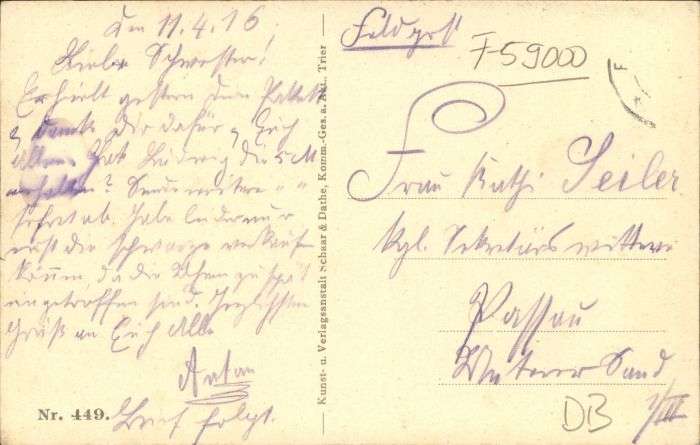 Am 11.4.16.
Liebe Schwester!
Erhielt gestern dein Paket
u. danke Dir dafür u. Euch
Allen. Hat Ludwig die 5 M
erhalten? Sende weitere " "
sofort ab. Habe leider nur
erst die schwarze verkaufen
können, da die Uhren zu spät
eingetroffen sind. Herzlichsten
Gruß an Euch Alle
Anton
Brief folgt.
Nr. 449.
Kunst- u. Verlagsanstalt Schaar & Dathe, Komm.-Ges. a. Akt., Trier
Feldpost
F-59000
Frau Kathi Seiler
kgl. Sekretärswittwe
Passau
Unterer Sand
DB